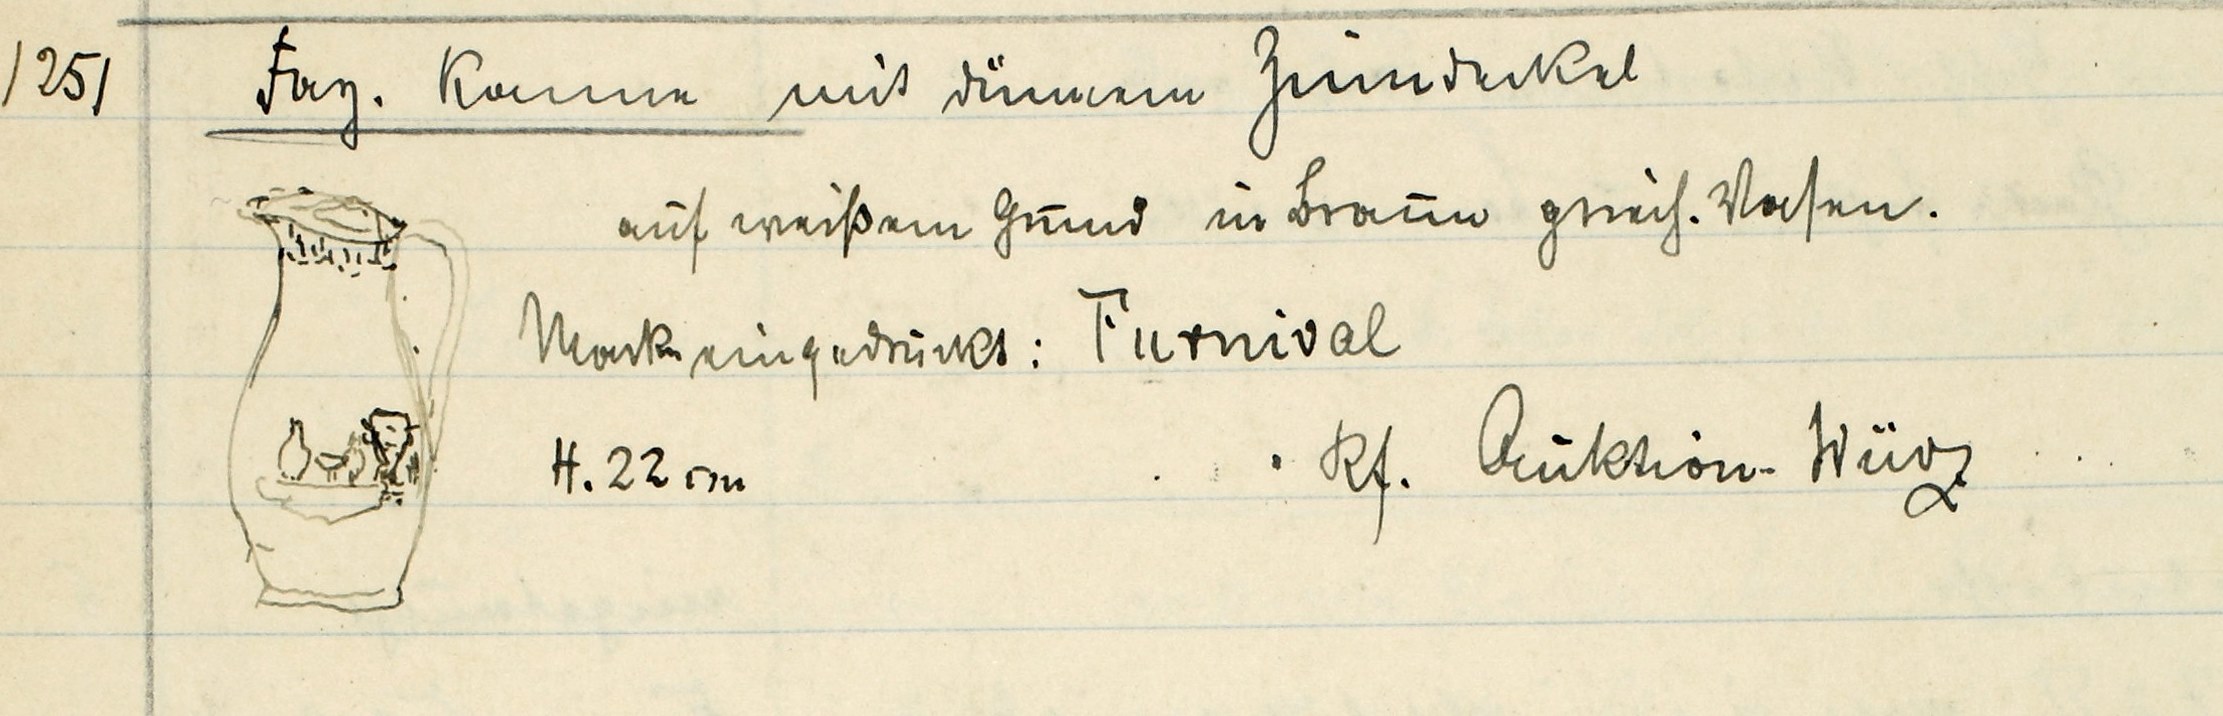 1251 Fay. Kanne mit dünnem Zinndeckel
auf weißem Grund in Braun griech. Vasen.
Marke eingedrückt: Furnival
H. 22 cm Kf. Auktion-Würz